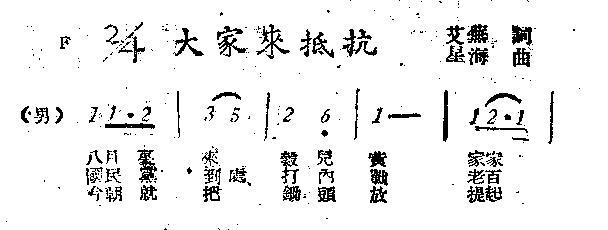 F 2/4 大家來抵抗 艾蕪 詞
星海 曲
(男) 1 1·2 | 3 5 | 2 6 | 1 — | 1 2·1 |
八月裏 來 穀兒黄 家家
國民黨 到處 打內戰 老百
今朝就 把 鋤頭放 提起